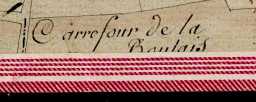 Carrefour de la
Boulais